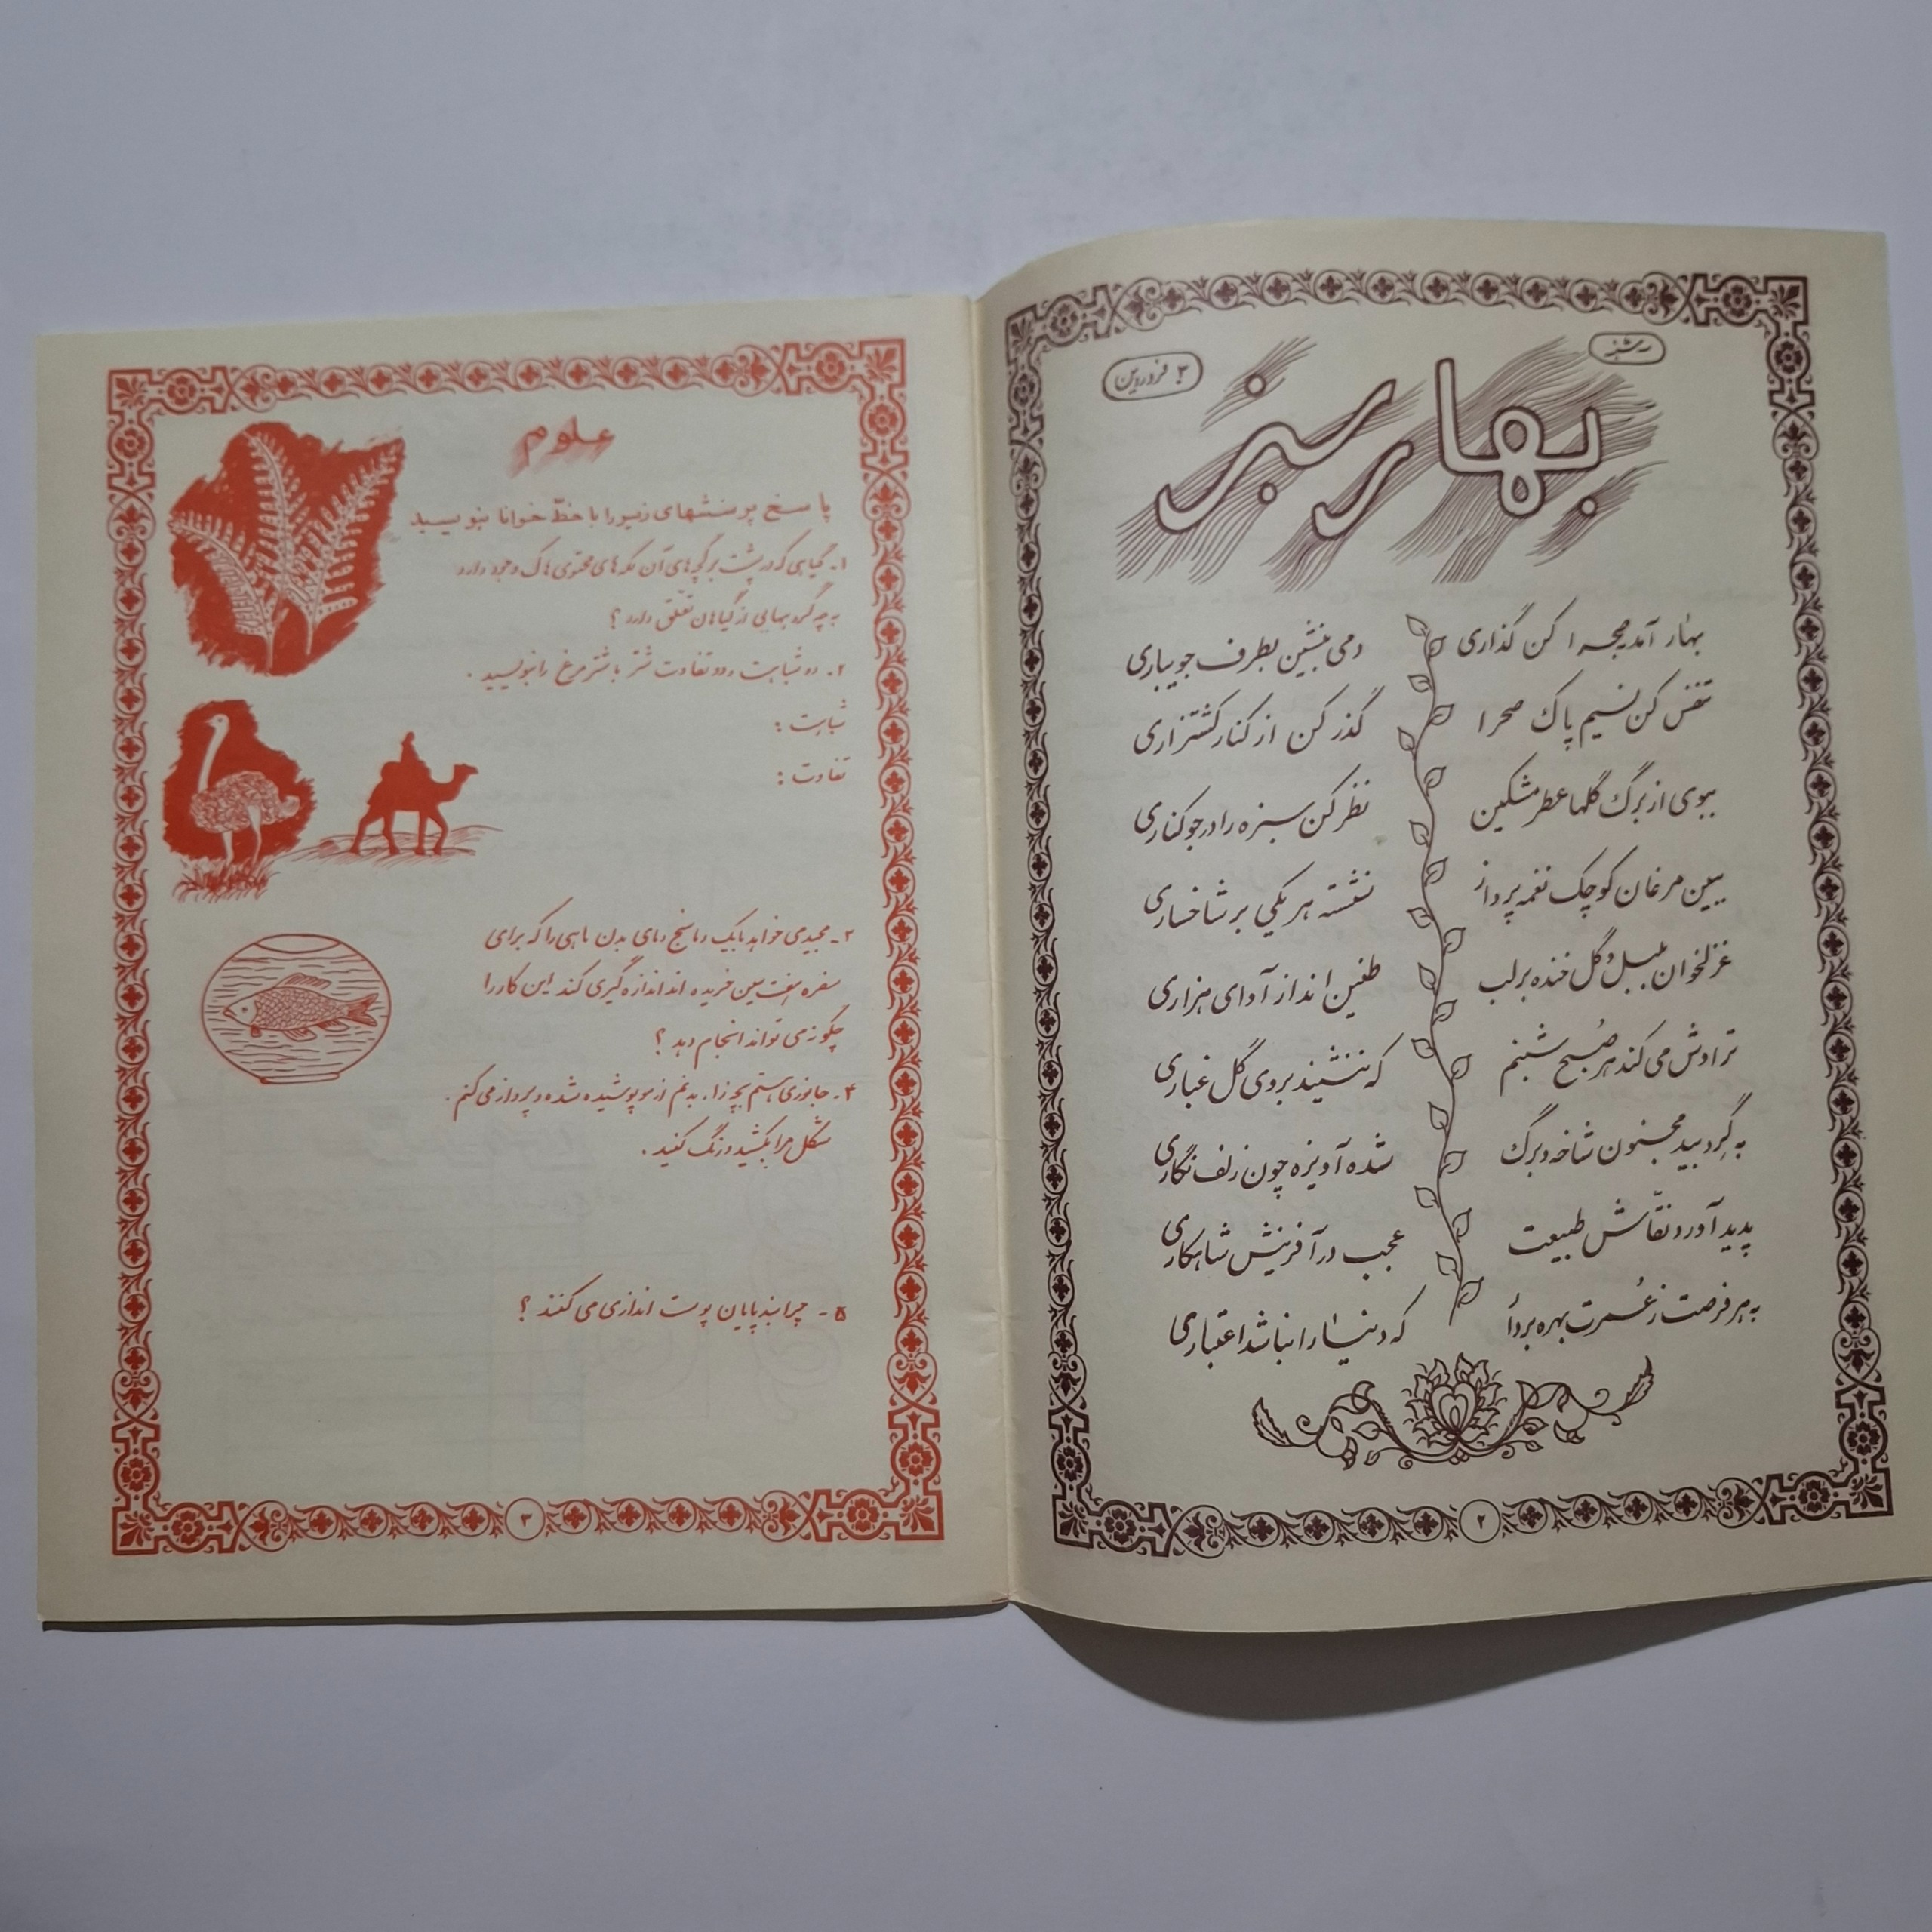 سه شنبه
۳ فروردین
بهار سبز
بهار آمد به صحرا کن گذاری
دمی بنشین بطرف جویباری
تنفس کن نسیم پاک صحرا
گذر کن از کنار کشتزاری
ببوی از برگ گلها عطر مشکین
نظر کن سبزه را در جو کناری
ببین مرغان کوچک نغمه پرداز
نشسته هر یکی بر شاخساری
غزلخوان بلبل و گل خنده بر لب
طنین انداز آوای هزاری
تراوش می کند هر صبح شبنم
که ننشیند بروی گل غباری
به گرد بید مجنون شاخه و برگ
شده آویزه چون زلف نگاری
پدید آورد نقّاش طبیعت
عجب در آفرینش شاهکاری
به هر فرصت ز عمرت بهره بردار
که دنیا را نباشد اعتباری
۲
علوم
پاسخ پرسشهای زیر را با خطّ خوانا بنویسید
۱- گیاهی که در پشت برگچه های آن لکه های محتوی هاگ وجود دارد
به چه گروههایی از گیاهان تعلّق دارد ؟
۲- دو شباهت و دو تفاوت شتر با شترمرغ را بنویسید .
شباهت :
تفاوت :
۳- مجید می خواهد بابک دمای بدن ماهی را که برای
سفره هفت سین خریده اند اندازه گیری کند این کار را
چگونه می تواند انجام دهد ؟
۴- جانوری هستم بچه زا، بدنم از مو پوشیده شده و پرواز می کنم .
شکل مرا بکشید و رنگ کنید .
۵- چرا بندپایان پوست اندازی می کنند ؟
۳